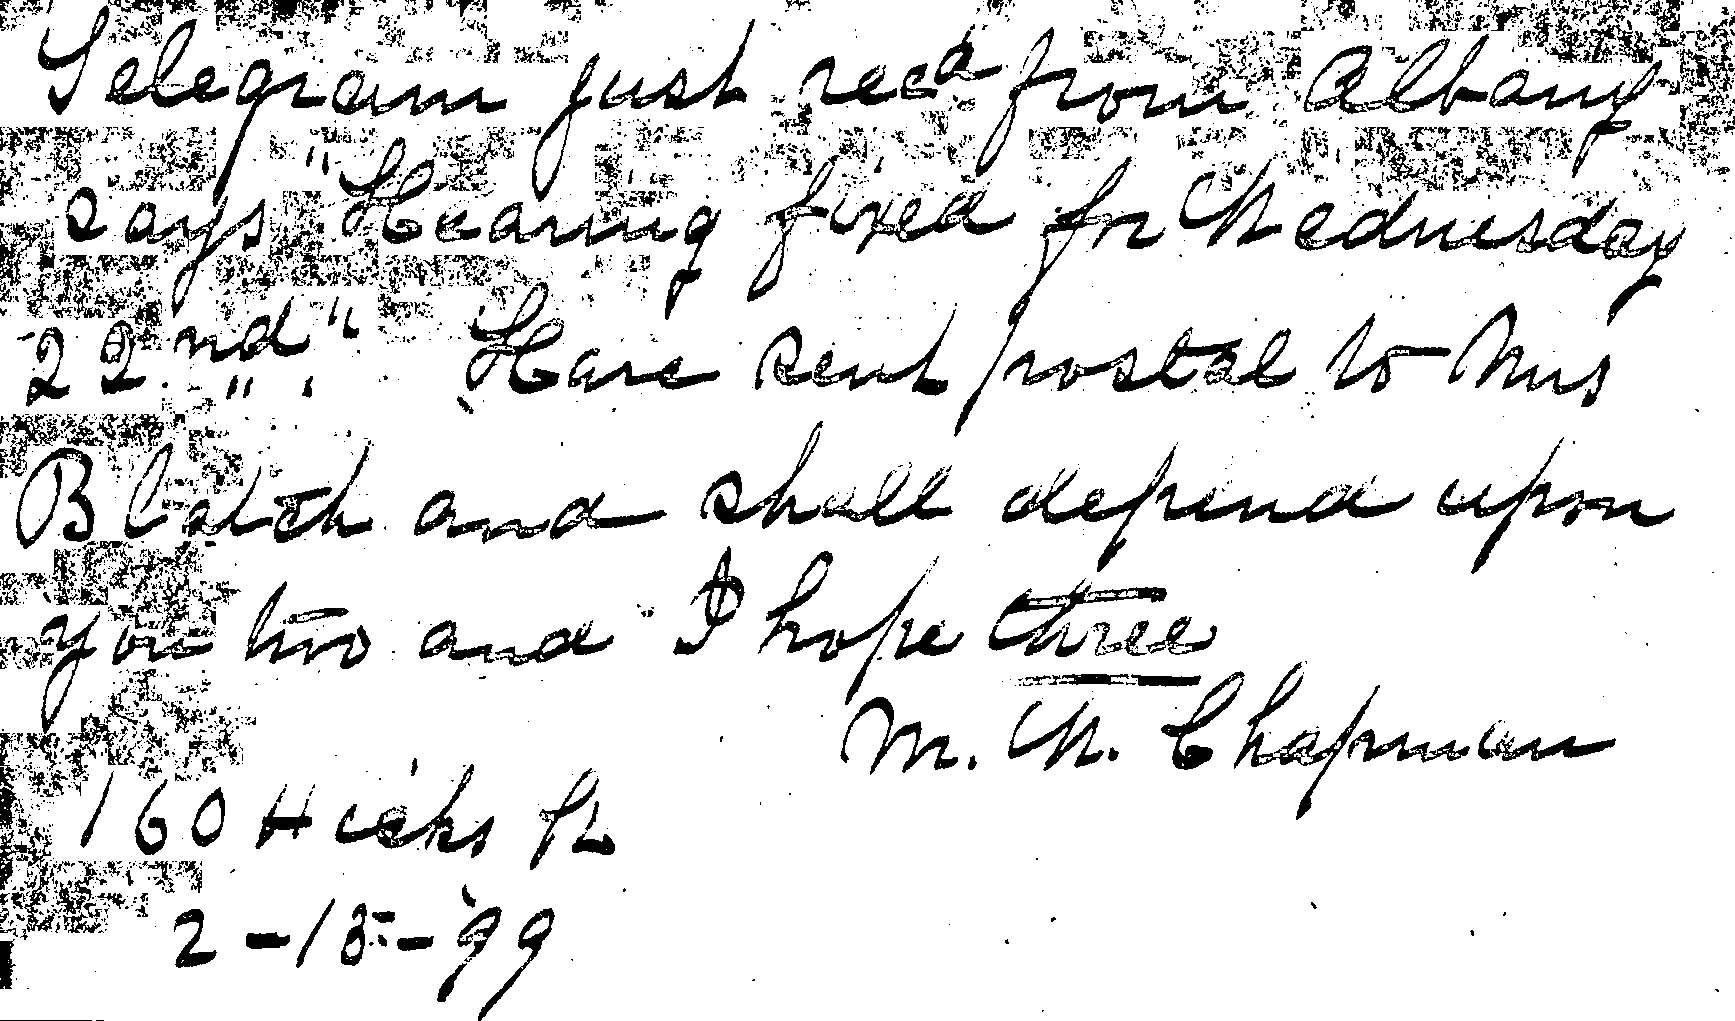 Telegram just recd from Albany
says "Hearing fixed for Wednesday
22nd". Have sent postal to Mrs
Blatch and shall depend upon
you two and I hope three
M. W. Chapman
160 Hicks St
2-15-'99